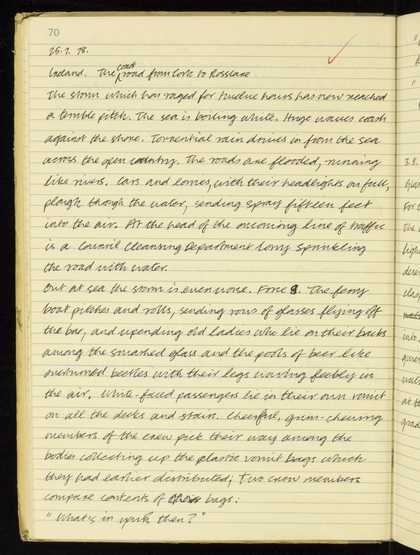 70
25.7.78.
coast
Ireland. The road from Cork to Rosslare
The storm which has raged for twelve hours has now reached
a terrible pitch. The sea is boiling white. Huge waves crash
against the shore. Torrential rain drives in from the sea
across the open country. The roads are flooded, running
like rivers. Cars and lorries, with their headlights on full,
plough through the water, sending spray fifteen feet
into the air. At the head of the oncoming line of traffic
is a Council Cleansing Department lorry sprinkling
the road with water.
Out at sea the storm is even worse. Force 8. The ferry
boat pitches and rolls, sending rows of glasses flying off
the bar, and upending old ladies who lie on their backs
among the smashed glass and the pools of beer like
overturned beetles with their legs waving feebly in
the air. White-faced passengers lie in their own vomit
on all the decks and stairs. Cheerful, gum-chewing
members of the crew pick their way among the
bodies collecting up the plastic vomit bags which
they had earlier distributed; Two crew members
compare contents of bags:
"What's in yours then?"
3.8.